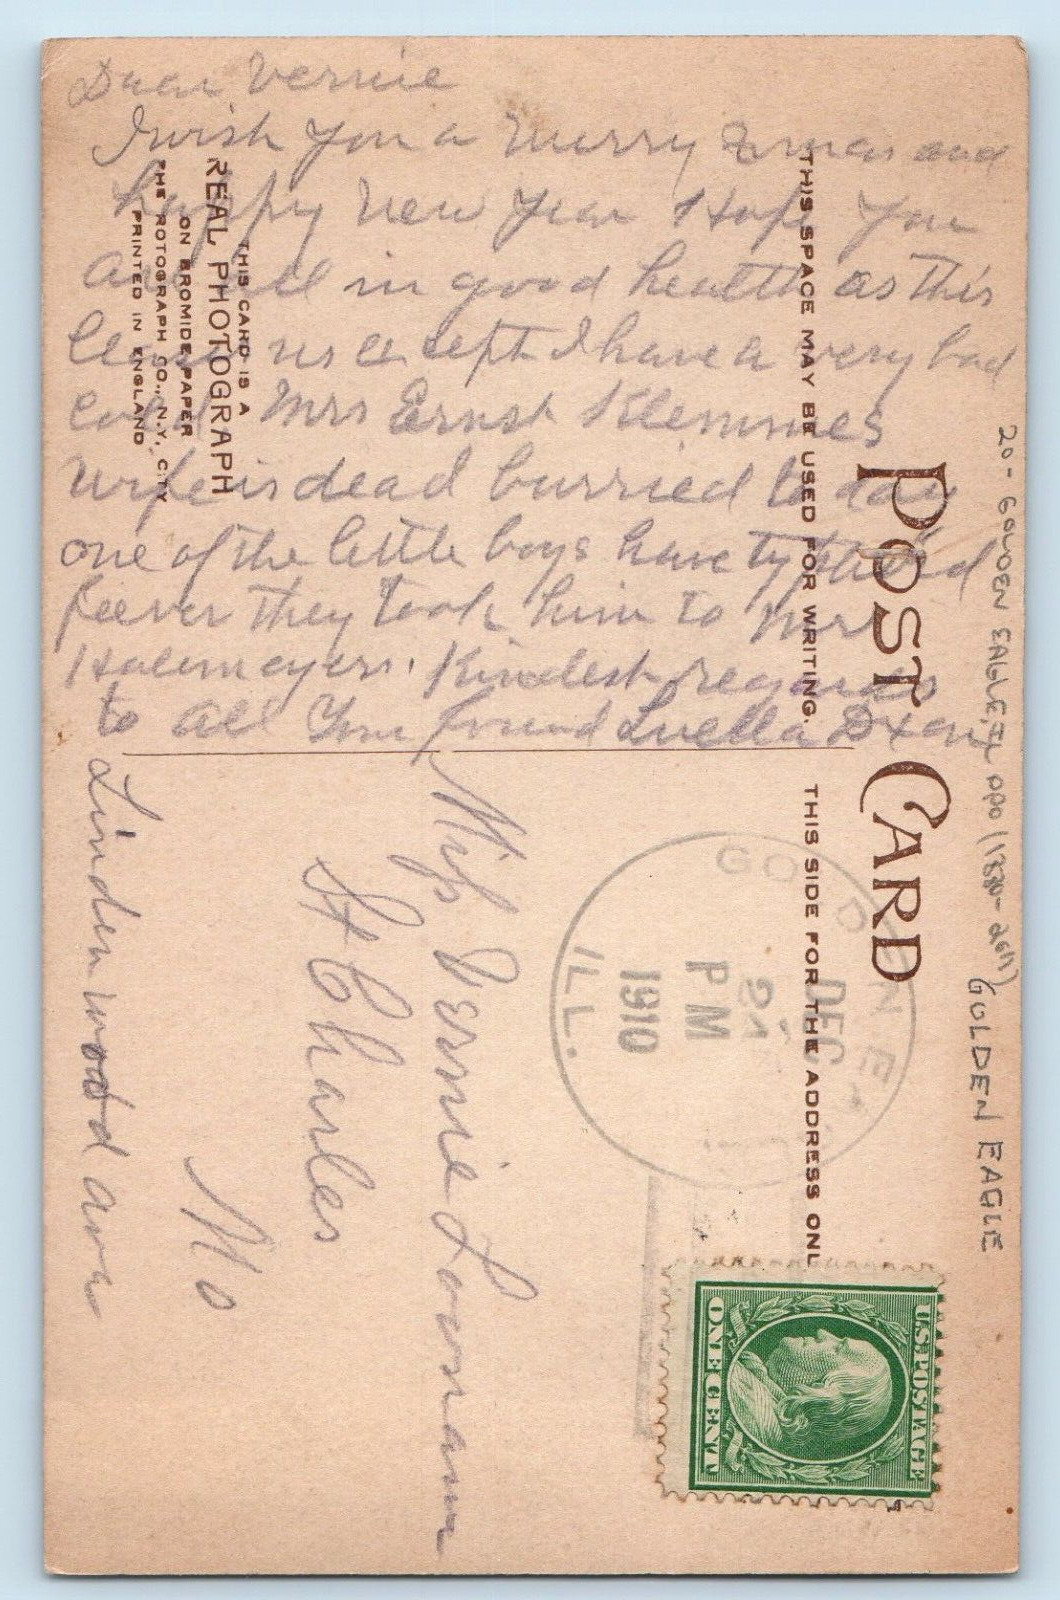 Dear Vernie
I wish you a Merry Xmas and
happy New Year Hope you
are all in good health as this
leaves us except I have a very bad
cold. Mrs Ernst Klemmes
wife is dead burried to day
one of the little boys have typhoid
feever they took him to Mrs
Kindest regards
to all Your friend Luella Dixon
THIS CARD IS A
REAL PHOTOGRAPH
ON BROMIDE PAPER
THE ROTOGRAPH CO., N.Y. CITY
PRINTED IN ENGLAND
POST CARD
THIS SPACE MAY BE USED FOR WRITING.
THIS SIDE FOR THE ADDRESS ONL
20- GOLDEN EAGLE, IL DPO (1880-
GOLDEN EAGLE
GOLDEN EA
DEC
24
PM
1910
ILL.
U.S. POSTAGE
ONE CENT
Miss Vernie
St Charles
Mo
Lindenwood ave